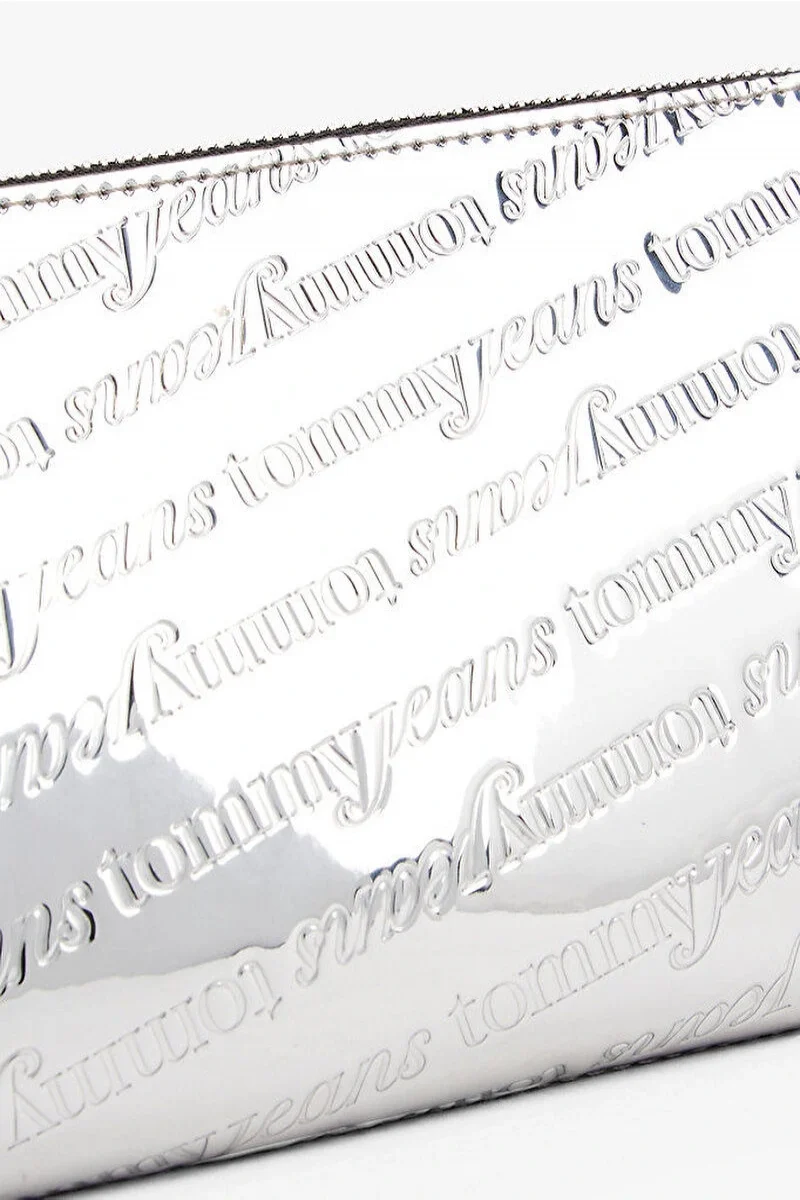 mmyJeans
myJeans tommyJeans to
Jeans tommyJeans tomm
tommyJeans tommyJean
ns tommyJeans tommy
ns tommyJeans tommy
Jeans tommyJea
Jeans to